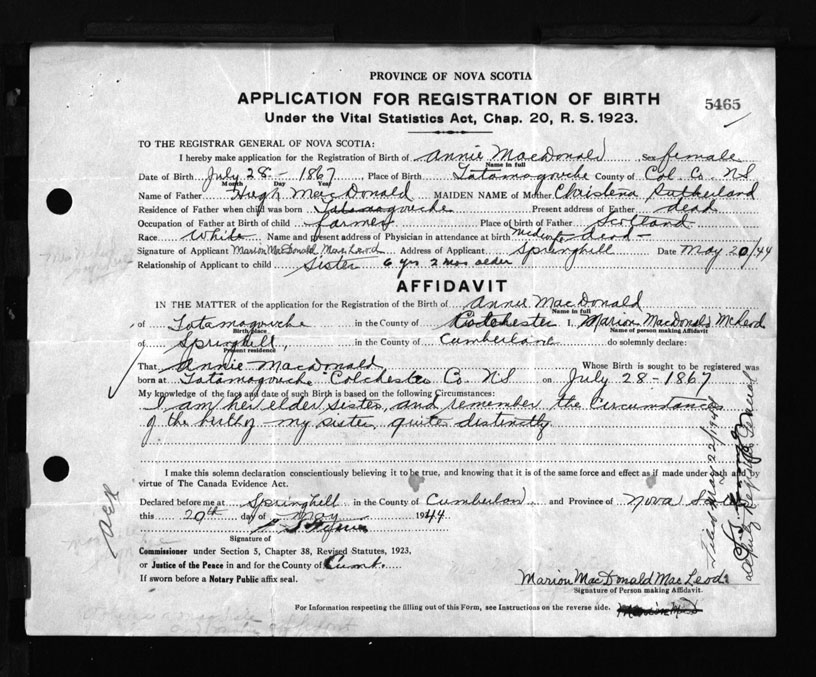 PROVINCE OF NOVA SCOTIA
APPLICATION FOR REGISTRATION OF BIRTH
5465
Under the Vital Statistics Act, Chap. 20, R. S. 1923.
TO THE REGISTRAR GENERAL OF NOVA SCOTIA:
I hereby make application for the Registration of Birth of Annie MacDonald, Sex female
Name in full
Date of Birth July 28 - 1867 Place of Birth Tatamagouche County of Col. Co. N S
Month Day Year
Name of Father Hugh MacDonald MAIDEN NAME of Mother Christena Sutherland
Residence of Father when child was born Tatamagouche Present address of Father dead
Occupation of Father at Birth of child farmer Place of birth of Father Scotland
Race White Name and present address of Physician in attendance at birth dead
Signature of Applicant Marion MacDonald MacLeod Address of Applicant Springhill Date May 20/44
Relationship of Applicant to child Sister 6 yrs 2 mos older
AFFIDAVIT
IN THE MATTER of the application for the Registration of the Birth of Annie MacDonald
Name in full
of Tatamagouche in the County of Colchester I, Marion MacDonald McLeod
Birth place Name of person making Affidavit
of Springhill, in the County of Cumberland do solemnly declare:
Present residence
That Annie MacDonald Whose Birth is sought to be registered was
born at Tatamagouche Colchester Co. N S on July 28 - 1867
My knowledge of the fact and date of such Birth is based on the following Circumstances:
I am her elder sister, and remember the Circumstances
of the birth of my sister, quite distinctly
I make this solemn declaration conscientiously believing it to be true, and knowing that it is of the same force and effect as if made under oath and by
virtue of The Canada Evidence Act.
Declared before me at Springhill in the County of Cumberland and Province of Nova
this 20th day of May 1944
Signature of
Commissioner under Section 5, Chapter 38, Revised Statutes, 1923,
or Justice of the Peace in and for the County of Cumb.
If sworn before a Notary Public affix seal.
Marion MacDonald MacLeod
Signature of Person making Affidavit.
For Information respecting the filling out of this Form, see Instructions on the reverse side.
Filed May 22/1944
Deputy Registrar General